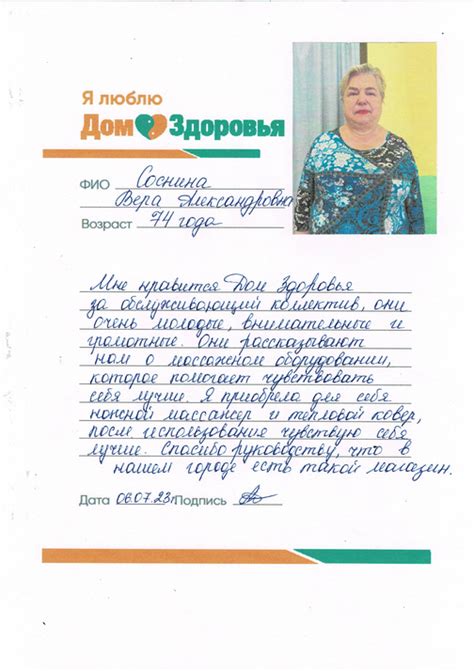 Я люблю
Дом Здоровья
ФИО Соснина
Вера Александровна
Возраст 74 года
Мне нравится Дом Здоровья
за обслуживающий коллектив, они
очень молодые, внимательные и
грамотные. Они рассказывают
нам о массажном оборудовании,
которое помогает чувствовать
себя лучше. Я приобрела для себя
ножной массажер и тепловой ковер,
после использование чувствую себя
лучше. Спасибо руководству, что в
нашем городе есть такой магазин.
Дата 06.07.23г Подпись